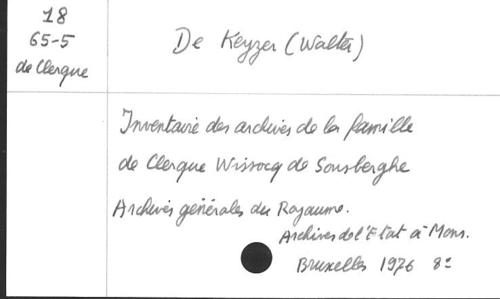 18
65-5
de Clerque
De Keyzer (Walter)
Inventaire des archives de la famille
de Clerque Wissocq de Sousberghe
Archives générales du Royaume.
Archives de l'Etat à Mons.
Bruxelles 1976 8°